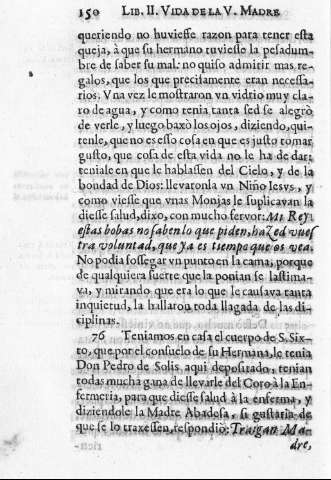 150 LIB. II. VIDA DE LA V. MADRE
queriendo no huviesse razon para tener esta
queja, à que su hermano tuviesse la pesadum-
bre de saber su mal: no quiso admitir mas re-
galos, que los que precisamente eran necessa-
rios. Vna vez le mostraron vn vidrio muy cla-
ro de agua, y como tenia tanta sed se alegrò
de verle, y luego baxò los ojos, diziendo, qui-
tenle, que no es esso cosa en que es justo tomar
gusto, que cosa de esta vida no le ha de dar:
tenialе en que le hablassen del Cielo, y de la
bondad de Dios: llevaronla vn Niño Iesvs, y
como viesse que vnas Monjas le suplicavan la
diesse salud, dixo, con mucho fervor: Mi Rey
estas bobas no saben lo que piden, hazed vues
tra voluntad, que ya es tiempo que os vea.
No podia sossegar vn punto en la cama, porque
de qualquiera suerte que la ponian se lastima-
va, y mirando que era lo que le causava tanta
inquietud, la hallaron toda llagada de las di-
ciplinas.
76 Teniamos en casa el cuerpo de S. Six-
to, que por el consuelo de su Hermana, le tenia
Don Pedro de Solis aqui depositado, tenian
todas mucha gana de llevarle del Coro à la En-
fermeria, para que diesse salud à la enferma, y
diziendole la Madre Abadesa, si gustaria de
que se lo traxessen, respondiò: Traigan Ma-
dre,